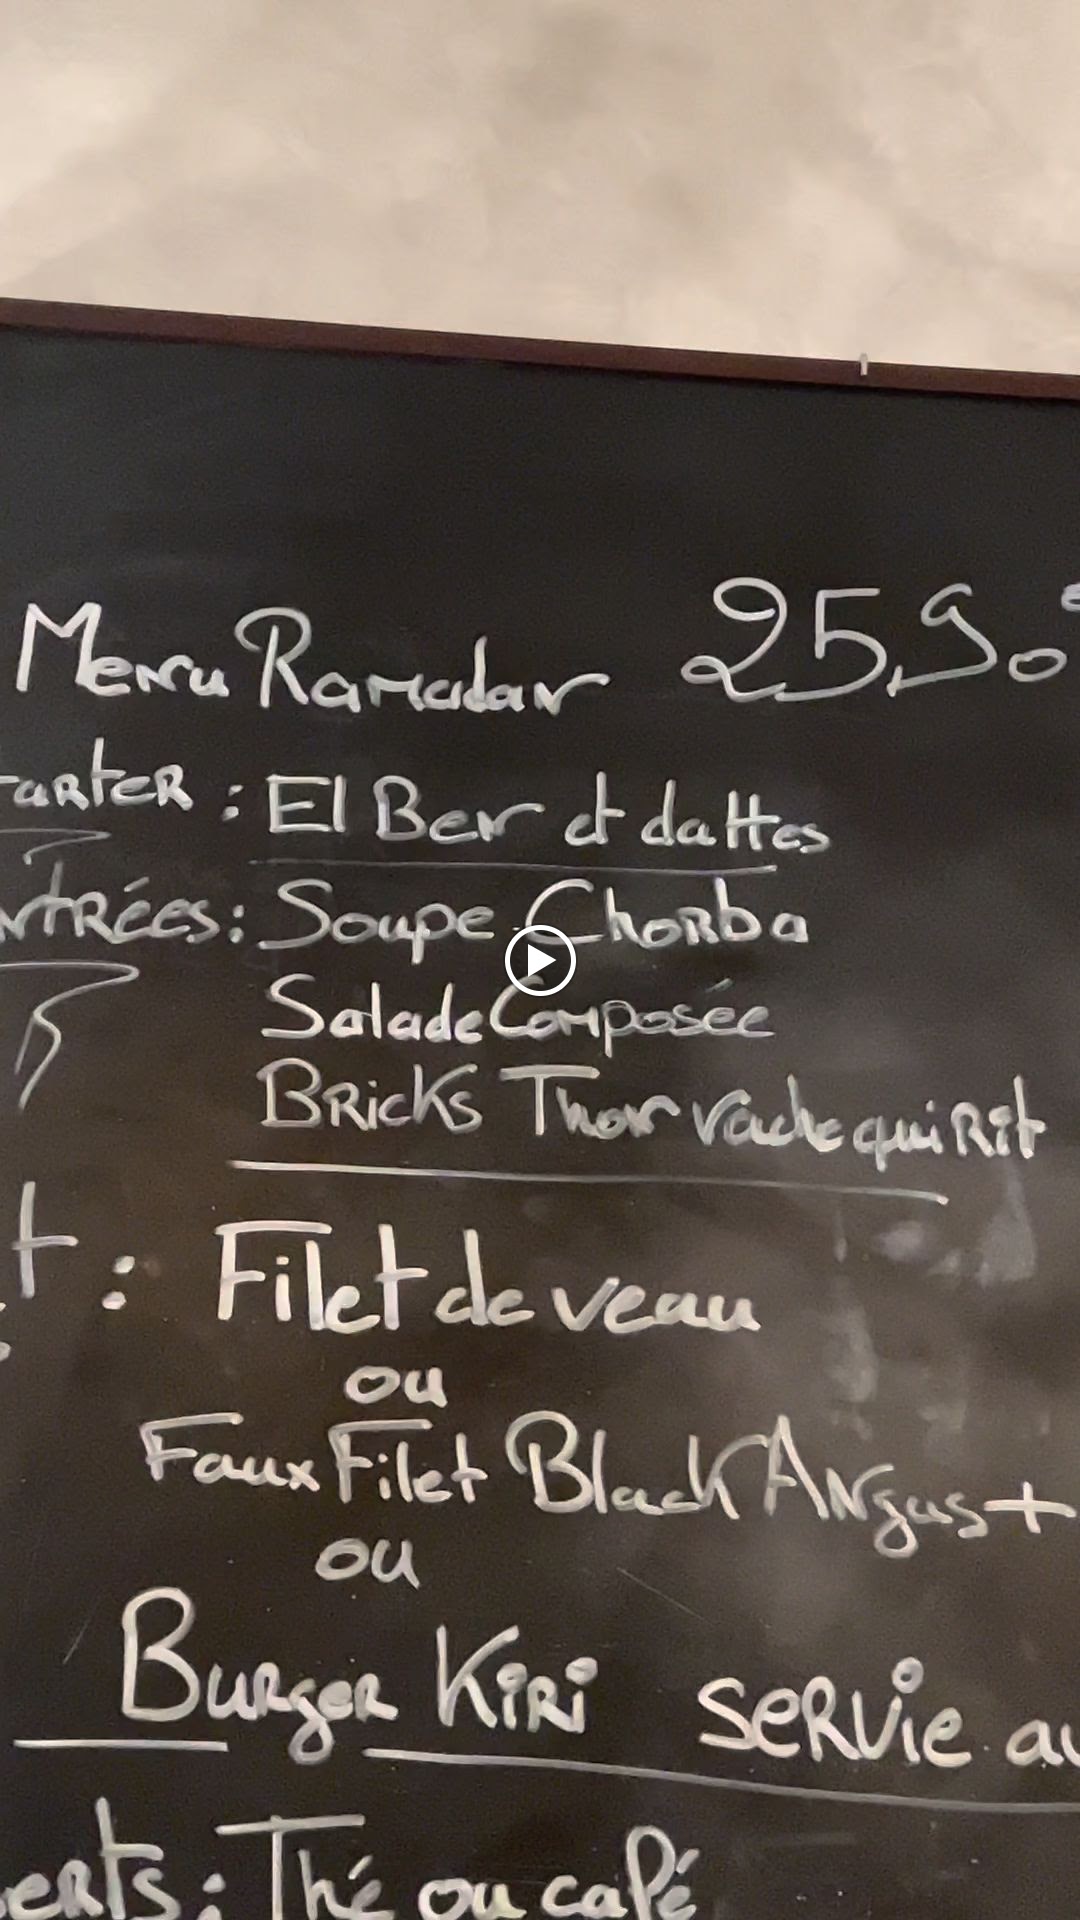 Menu Ramadan 25,90
tarter : El Ben et dattes
ntrées : Soupe Chorba
Salade Composée
Bricks Thon vache qui Rit
t : Filet de veau
ou
Faux Filet Black Angus +
ou
Burger Kiri servie au
erts : Thé ou café